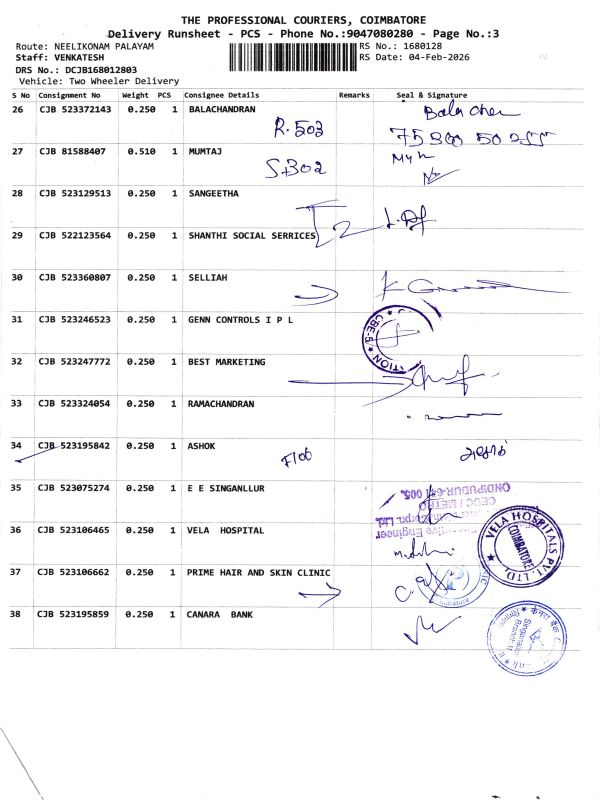 THE PROFESSIONAL COURIERS, COIMBATORE
Delivery Runsheet - PCS - Phone No.:9047080280 - Page No.:3
Route: NEELIKONAM PALAYAM
RS No.: 1680128
Staff: VENKATESH
RS Date: 04-Feb-2026
DRS No.: DCJB168012803
Vehicle: Two Wheeler Delivery
S No Consignment No Weight PCS Consignee Details Remarks Seal & Signature
26 CJB 523372143 0.250 1 BALACHANDRAN
R.503
27 CJB 81588407 0.510 1 MUMTAJ
SB02
28 CJB 523129513 0.250 1 SANGEETHA
29 CJB 522123564 0.250 1 SHANTHI SOCIAL SERRICES
30 CJB 523360807 0.250 1 SELLIAH
31 CJB 523246523 0.250 1 GENN CONTROLS I P L
CBE-5
32 CJB 523247772 0.250 1 BEST MARKETING
33 CJB 523324054 0.250 1 RAMACHANDRAN
34 CJB 523195842 0.250 1 ASHOK
F100
35 CJB 523075274 0.250 1 E E SINGANLLUR
ONDIPUDUR-641 005.
36 CJB 523106465 0.250 1 VELA HOSPITAL
VELA HOSPITALS PVT. LTD.
COIMBATORE
37 CJB 523106662 0.250 1 PRIME HAIR AND SKIN CLINIC
38 CJB 523195859 0.250 1 CANARA BANK